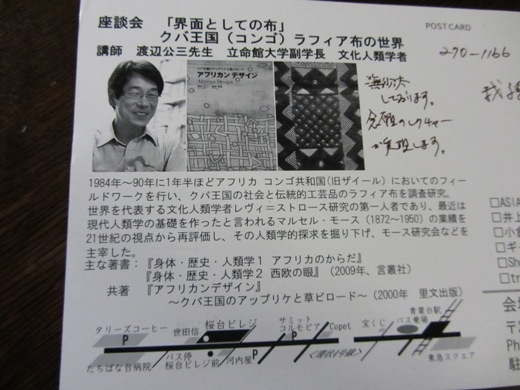 座談会 「界面としての布」
クバ王国（コンゴ）ラフィア布の世界
講師 渡辺公三先生 立命館大学副学長 文化人類学者
POST CARD
270-1166
アフリカンデザイン
無沙汰
しております。
念願のレクチャー
が実現します。
1984年～90年に1年半ほどアフリカ コンゴ共和国(旧ザイール)においてのフィー
ルドワークを行い、クバ王国の社会と伝統的工芸品のラフィア布を調査研究。
世界を代表する文化人類学者レヴィ＝ストロース研究の第一人者であり、最近は
現代人類学の基礎を作ったと言われるマルセル・モース（1872～1950）の業績を
21世紀の視点から再評価し、その人類学的探求を掘り下げ、モース研究会などを
主宰した。
主な著書： 『身体・歴史・人類学1 アフリカのからだ』
『身体・歴史・人類学2 西欧の眼』（2009年、言叢社）
共著 『アフリカンデザイン』
～クバ王国のアップリケと草ビロード～（2000年 里文出版）
タリーズコーヒー
P
世田信
桜台ビレジ
サミット
コルモピア
Copet
宝くじ
バス乗場
青葉台駅
たちばな台病院
バス停
桜台ビレジ前
河内屋
P
東急スクエア
□ASIA
□井上
□小倉
□ギ
□Sh
□tr
会
〒
Ph
駐